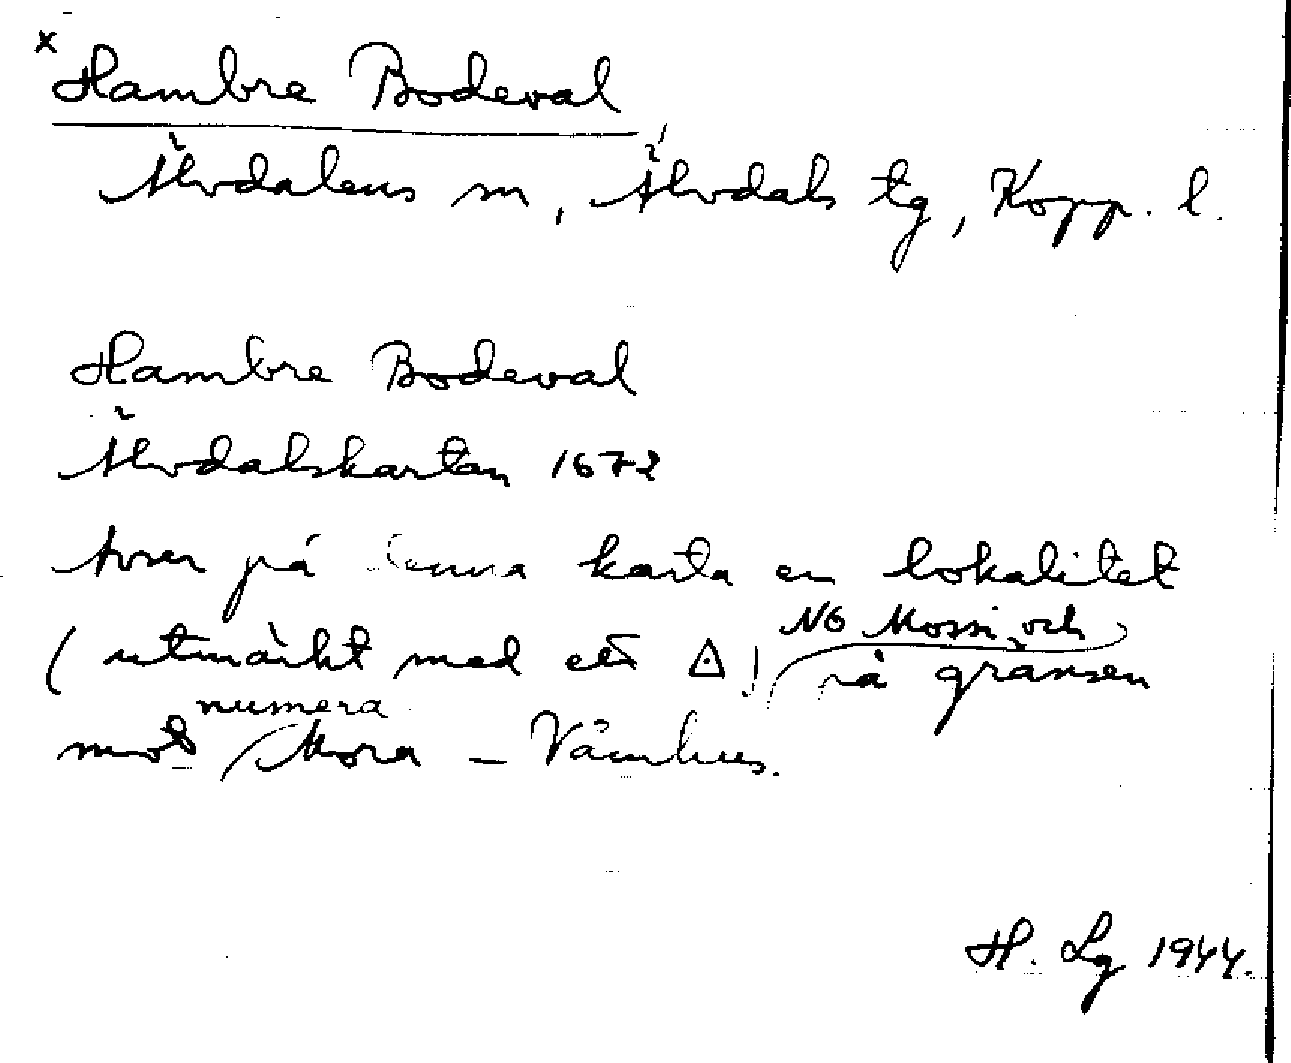 x Hambre Bodeval
Älvdalens sn, Älvdals tg, Kopp. l.
Hambre Bodeval
Älvdalskartan 1672
Avser på denna karta en lokalitet
(utmärkt med ett △) NO Mossi och på gränsen
mot numera Mora – Våmhus.
H. Lg 1944.